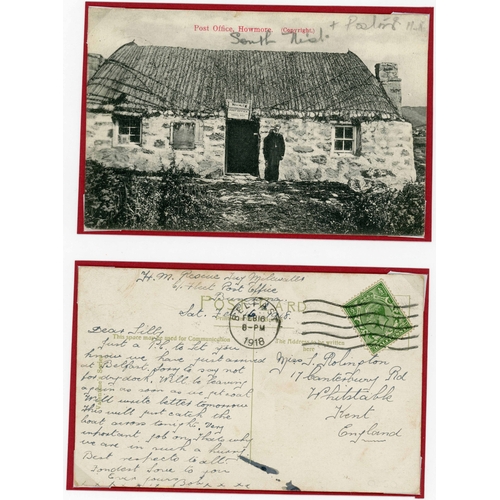 Post Office, Howmore. (Copyright.)
South Uist. +
H. M.
c/o Fleet Post Office
POST CARD
Sat. Feb 16 1918.
BELFAST
FEB 16
8-PM
1918
This space may be used for Communication
The Address to be written
Dear Lill,
Just a P.C. to let you
know we have just arrived
at Belfast, sorry to say not
for dry dock. Will be leaving
again as soon as we
Will write letter tomorrow
This will just catch the
boat across tonight. Very
important job on, thats why
we are in such a hurry.
Best respects to all.
Fondest love to you
Miss L. Rolmpton
17 Canterbury Rd
Whitstable
Kent
England